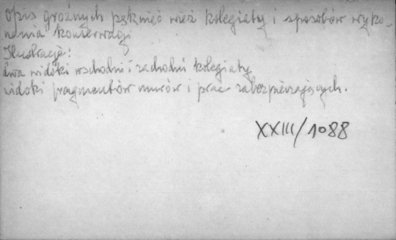 Opis groźnych pęknięć wież kolegiaty i sposobów wyko-
nania konserwacji
Ilustracje:
dwa widoki wschodni i zachodni kolegiaty,
widoki fragmentów murów i prac zabezpieczających.
XXIII/1088